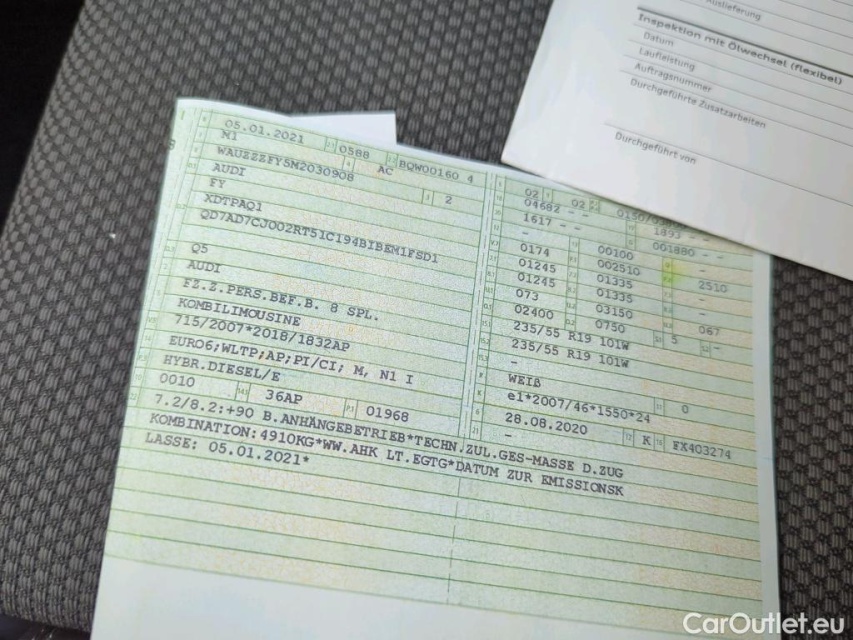 Auslieferung
Inspektion mit Ölwechsel (flexibel)
Datum
Laufleistung
Auftragsnummer
Durchgeführte Zusatzarbeiten
Durchgeführt von
05.01.2021 0588 BQW00160 4
M1 AC
WAUZZZFY5M2030908 2
AUDI
FY
XDTPAQ1
QD7AD7CJ002RT51C194BIBEM1FSD1
Q5
AUDI
FZ.Z.PERS.BEF.B. 8 SPL.
KOMBILIMOUSINE
715/2007*2018/1832AP
EURO6;WLTP;AP;PI/CI; M, N1 I
HYBR.DIESEL/E
0010 36AP 01968
02 02 0150/03
04682 - - 1893 - -
1617 - - 001880 - -
0174 00100 -
01245 002510 2510
01245 01335 -
073 01335
02400 03150 067
235/55 R19 101W 0750 5 -
235/55 R19 101W
-
WEIß 0
e1*2007/46*1550*24
28.08.2020 K FX403274
-
7.2/8.2:+90 B.ANHÄNGEBETRIEB*TECHN.ZUL.GES-MASSE D.ZUG
KOMBINATION:4910KG*WW.AHK LT.EGTG*DATUM ZUR EMISSIONSK
LASSE: 05.01.2021*
CarOutlet.eu